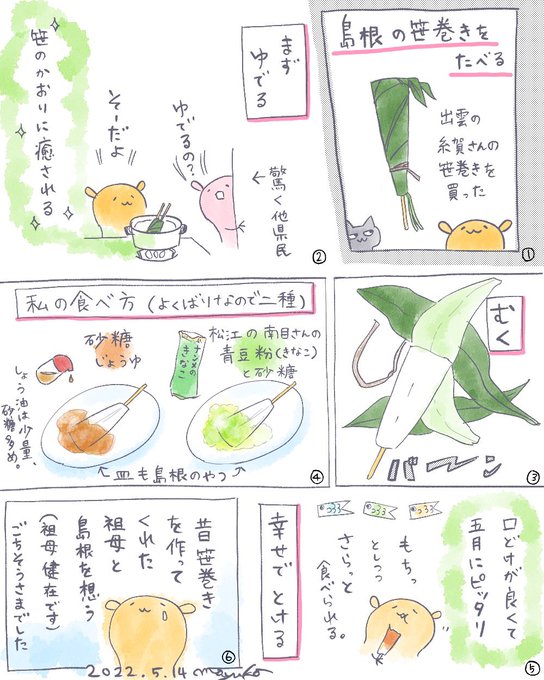 島根の笹巻きを
たべる
出雲の
糸賀さんの
笹巻きを
買った
①
まず
ゆでる
ゆでるの?
そーだよ
笹のかおりに癒される
← 驚く他県民
②
むく
バーン
③
私の食べ方(よくばりなので二種)
砂糖
じょうゆ
しょう油は少量、
砂糖多め。
松江の南目さんの
青豆粉(きなこ)
と砂糖
なんめの
きなこ
↑皿も島根のやつ↑
④
口どけが良くて
五月にピッタリ
もちっ
としつつ
さらっと
食べられる。
⑤
幸せでとける
昔笹巻き
を作って
くれた
祖母と
島根を想う
(祖母健在です)
ごちそうさまでした
⑥
2022.5.14 mayuko